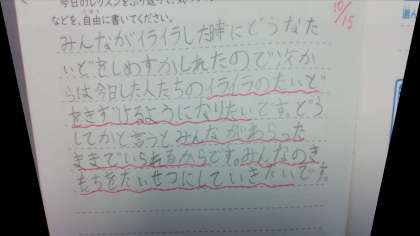 今日のレッスンをふり返って、気づ
などを、自由に書いてください。
10/15
みんながイライラした時にどうなた
いどをしめすかしれたので次か
らは今日した人たちのイライラのたいど
をきずけるようになりたいです。どう
してかと言うとみんながあらった
ききでいられるからです。みんなのき
もちをたいせつにしていきたいです。
選ん